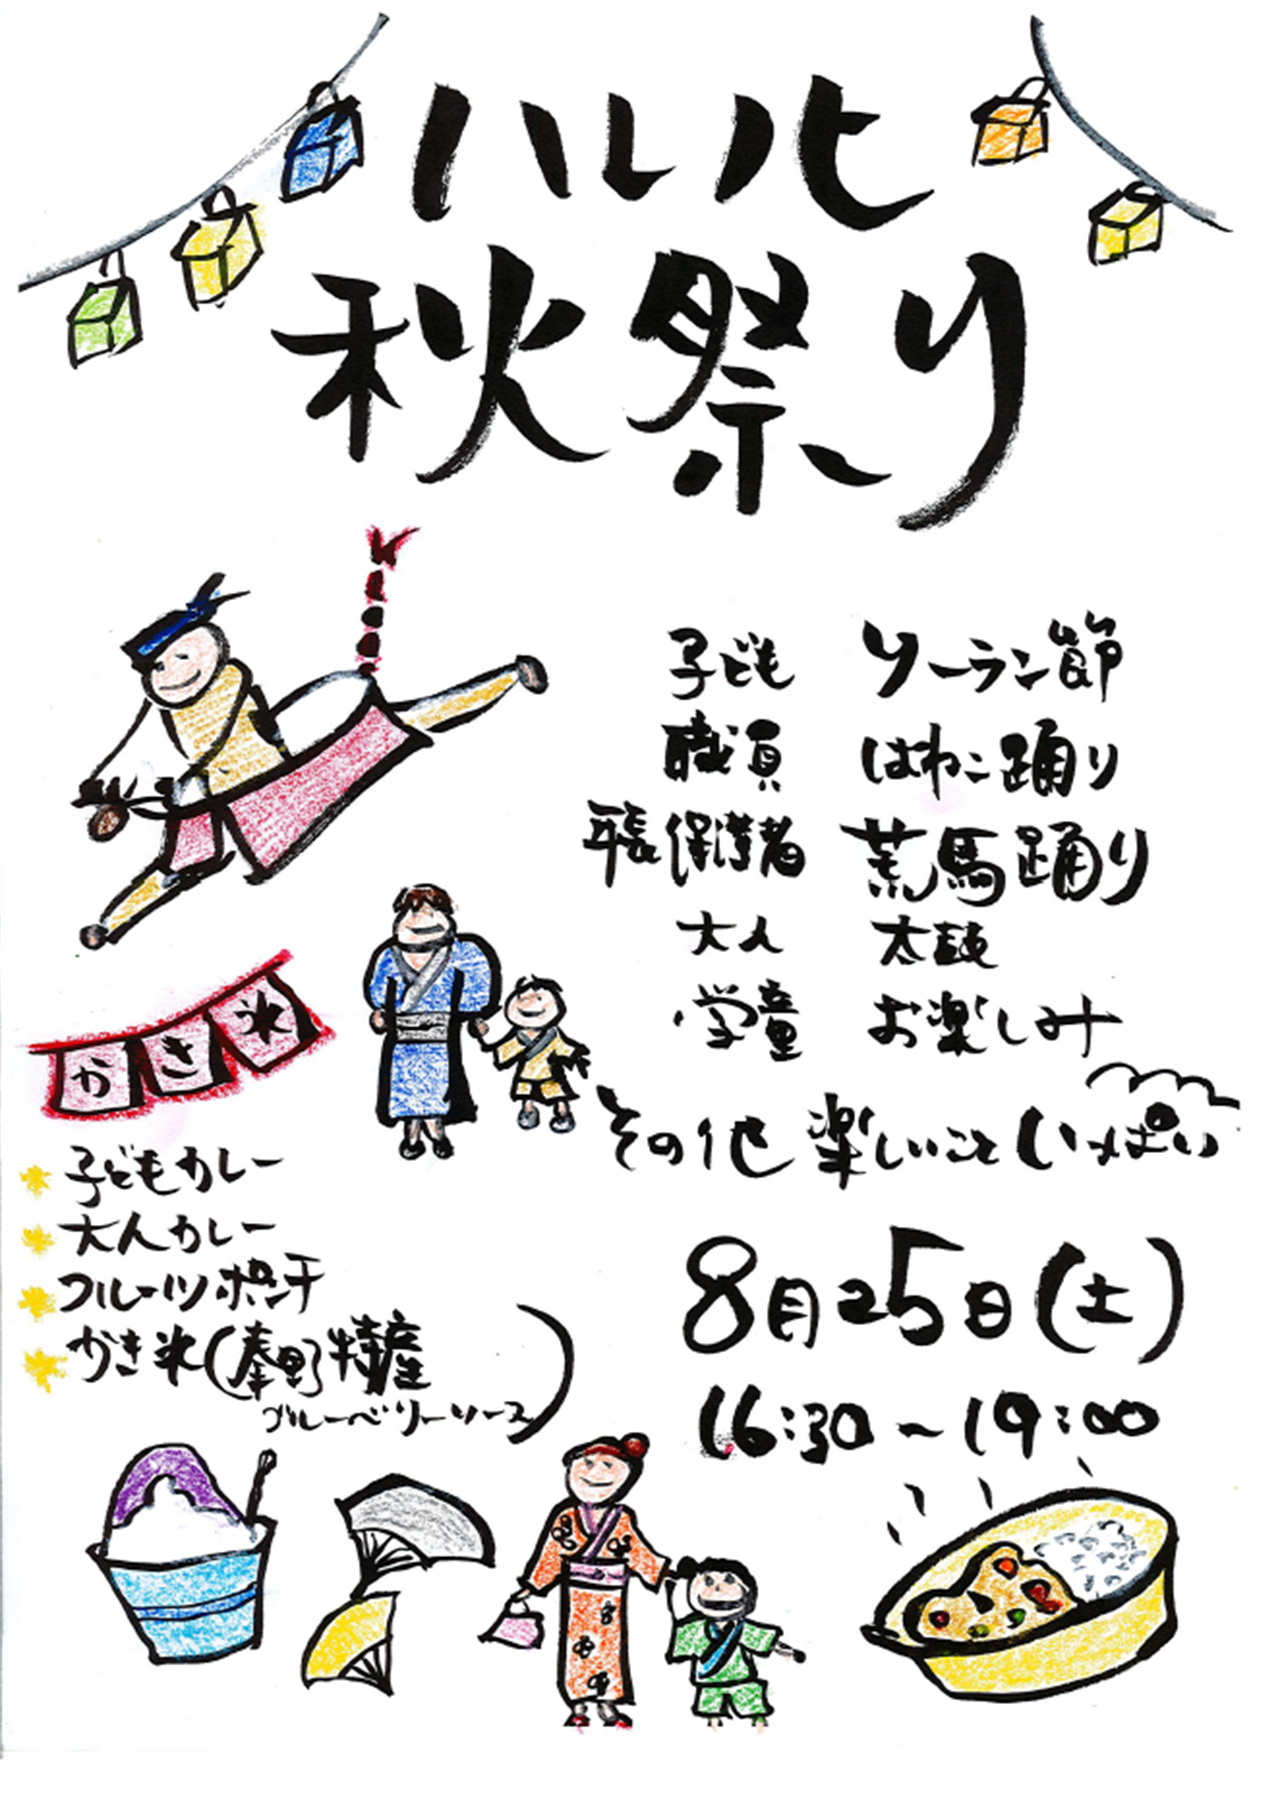 ハレノヒ
秋祭り
子ども ソーラン節
職員 はねこ踊り
年長保護者 荒馬踊り
大人 太鼓
学童 お楽しみ
その他 楽しいこといっぱい
かき氷
子どもカレー
大人カレー
フルーツポンチ
かき氷(秦野特産
ブルーベリーソース)
8月25日(土)
16:30~19:00